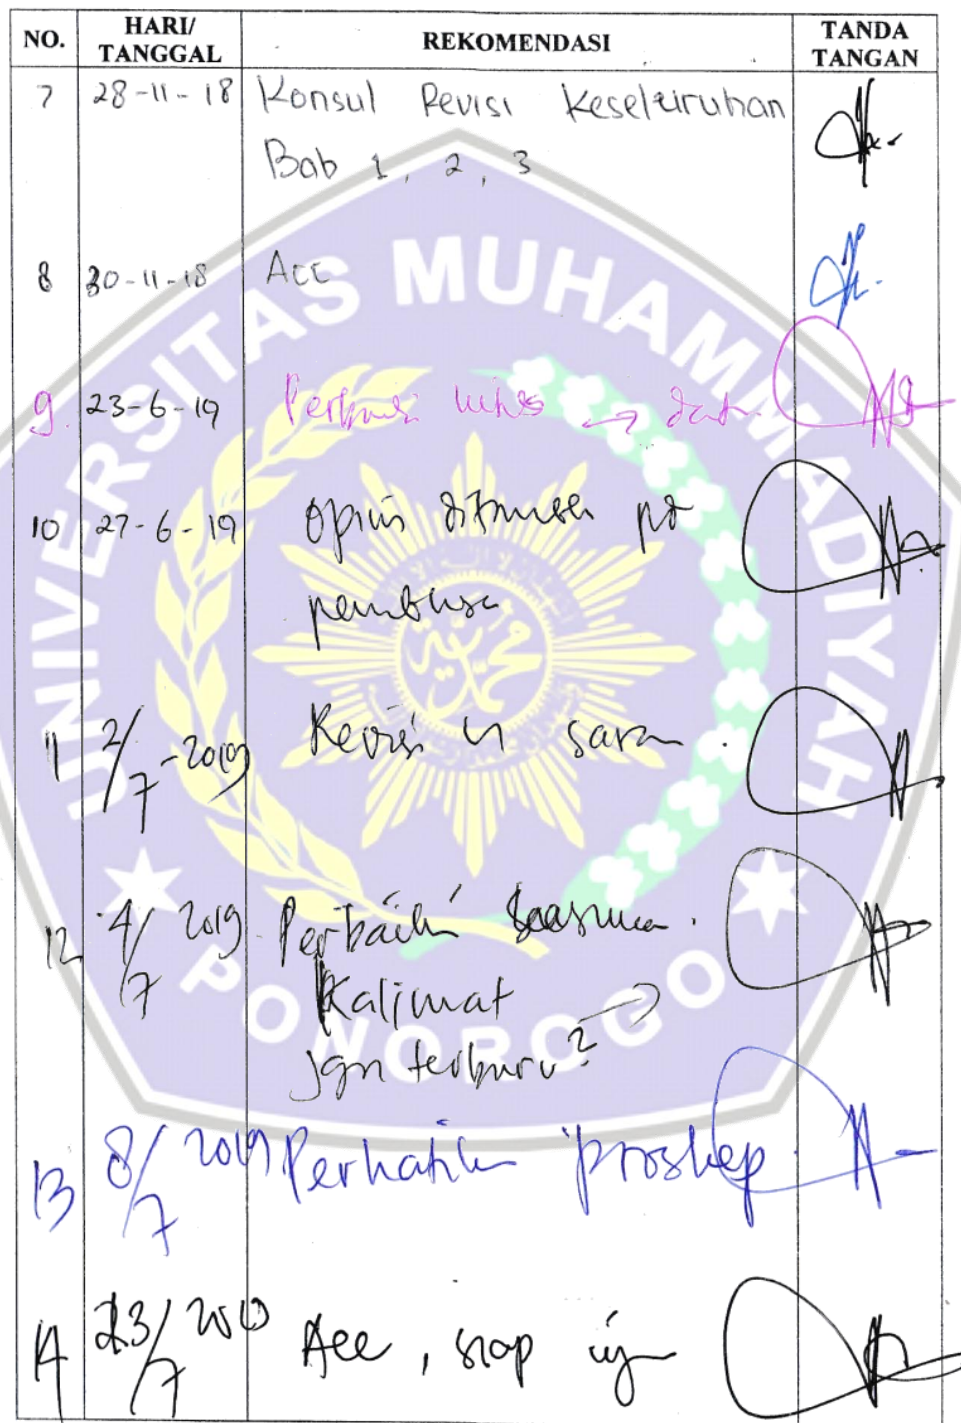 NO. HARI/ TANGGAL REKOMENDASI TANDA TANGAN
7 28-11-18 Konsul Revisi Keseluruhan
Bab 1, 2, 3
8 30-11-18 Acc
9. 23-6-19
10 27-6-19 opini pd
11 2/7-2019 Revisi saran.
12 4/7 2019 Perbaiki
Kalimat
jgn terburu2
13 8/7 2019 Perhatikan proskep
14 23/7 2019 Acc, siap uji
UNIVERSITAS MUHAMMADIYAH
PONOROGO